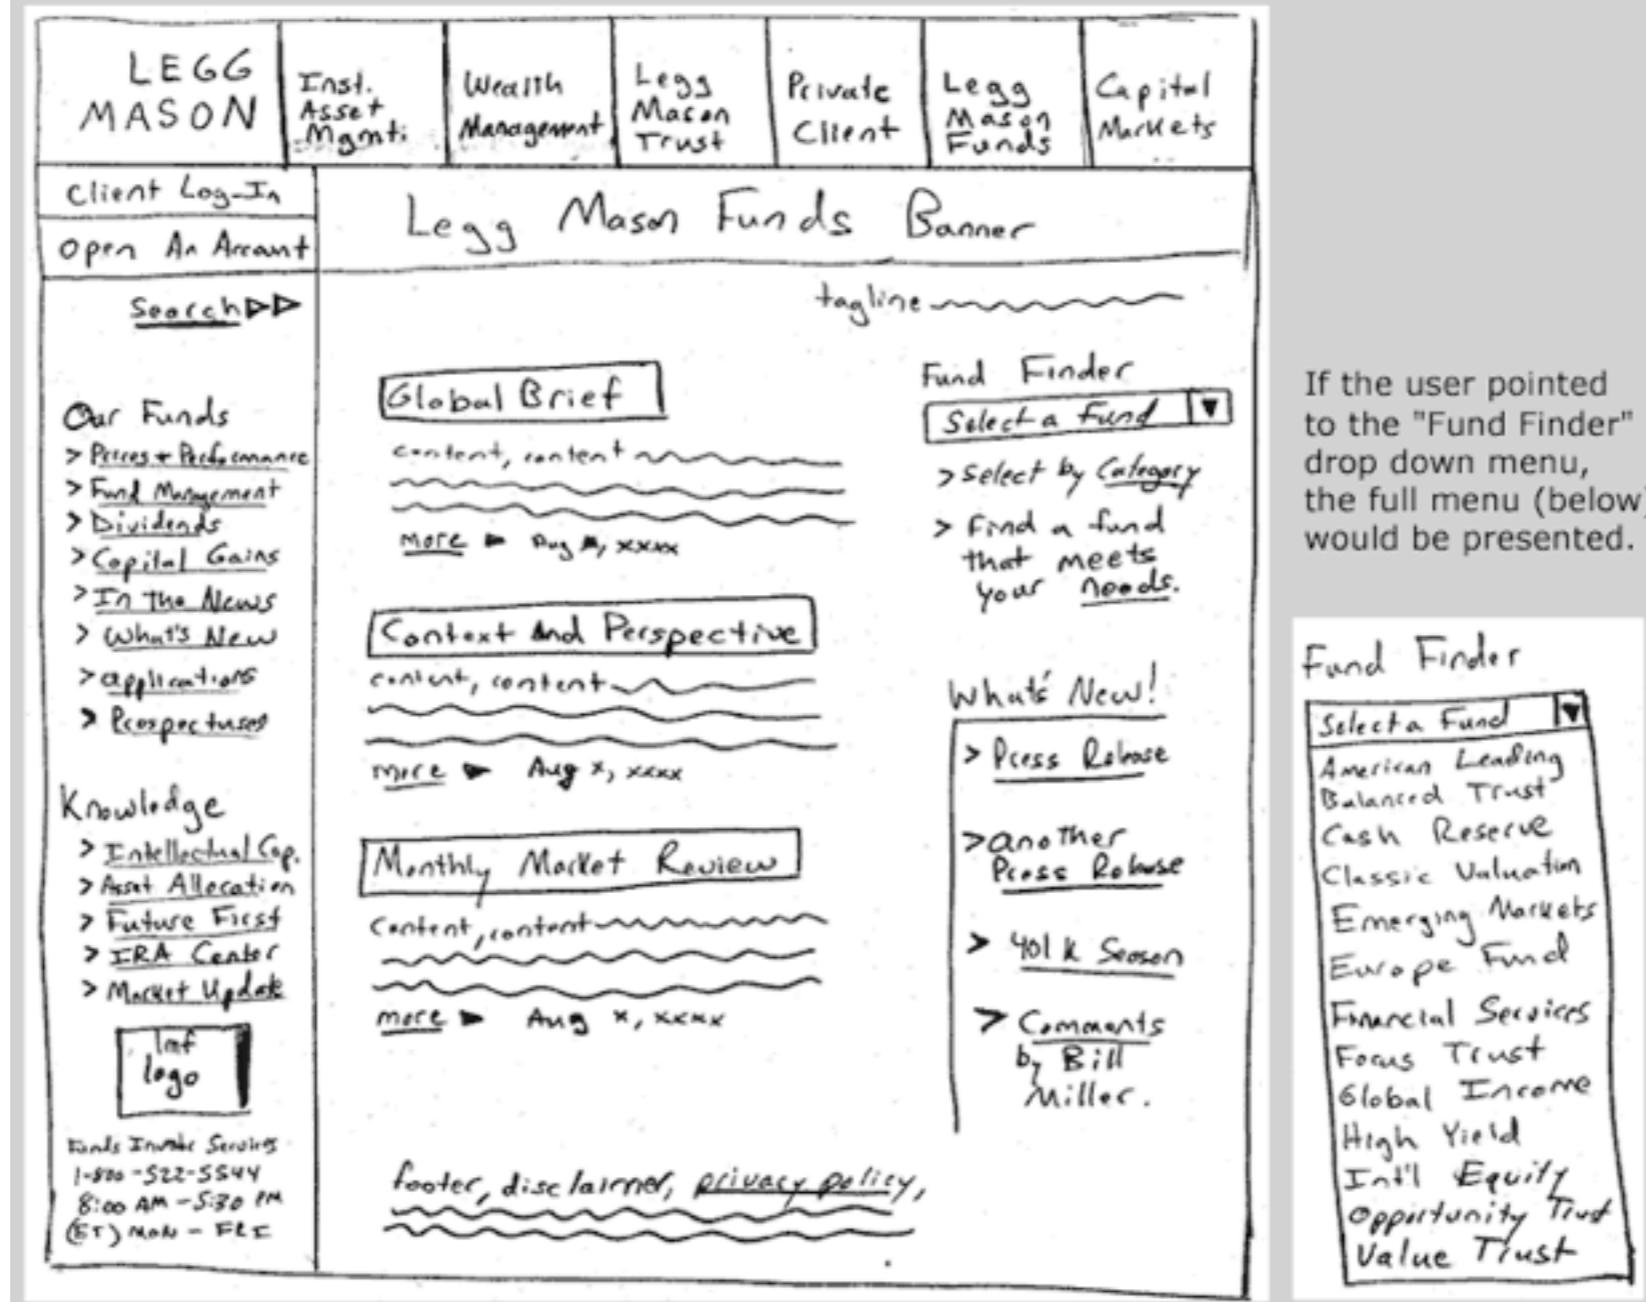 LEGG
MASON
Inst.
Asset
Mgmt.
Wealth
Management
Legg
Mason
Trust
Private
Client
Legg
Mason
Funds
Capital
Markets
Client Log-In
Open An Account
Legg Mason Funds Banner
Search
tagline
Our Funds
> Prices + Performance
> Fund Management
> Dividends
> Capital Gains
> In The News
> What's New
> applications
> Prospectuses
Knowledge
> Intellectual Cap.
> Asset Allocation
> Future First
> IRA Center
> Market Update
lmf
logo
Funds Investor Services
1-800-522-5544
8:00 AM - 5:30 PM
(ET) MON - FRI
Global Brief
content, content
more ► Aug x, xxxx
Context And Perspective
content, content
more ► Aug x, xxxx
Monthly Market Review
Content, content
more ► Aug x, xxxx
Fund Finder
Select a Fund ▼
> Select by Category
> Find a fund
that meets
your needs.
What's New!
> Press Release
> another
Press Release
> 401 k Season
> Comments
by Bill
Miller.
footer, disclaimer, privacy policy,
If the user pointed
to the "Fund Finder"
drop down menu,
the full menu (below)
would be presented.
Fund Finder
Select a Fund ▼
American Leading
Balanced Trust
Cash Reserve
Classic Valuation
Emerging Markets
Europe Fund
Financial Services
Focus Trust
Global Income
High Yield
Int'l Equity
Opportunity Trust
Value Trust